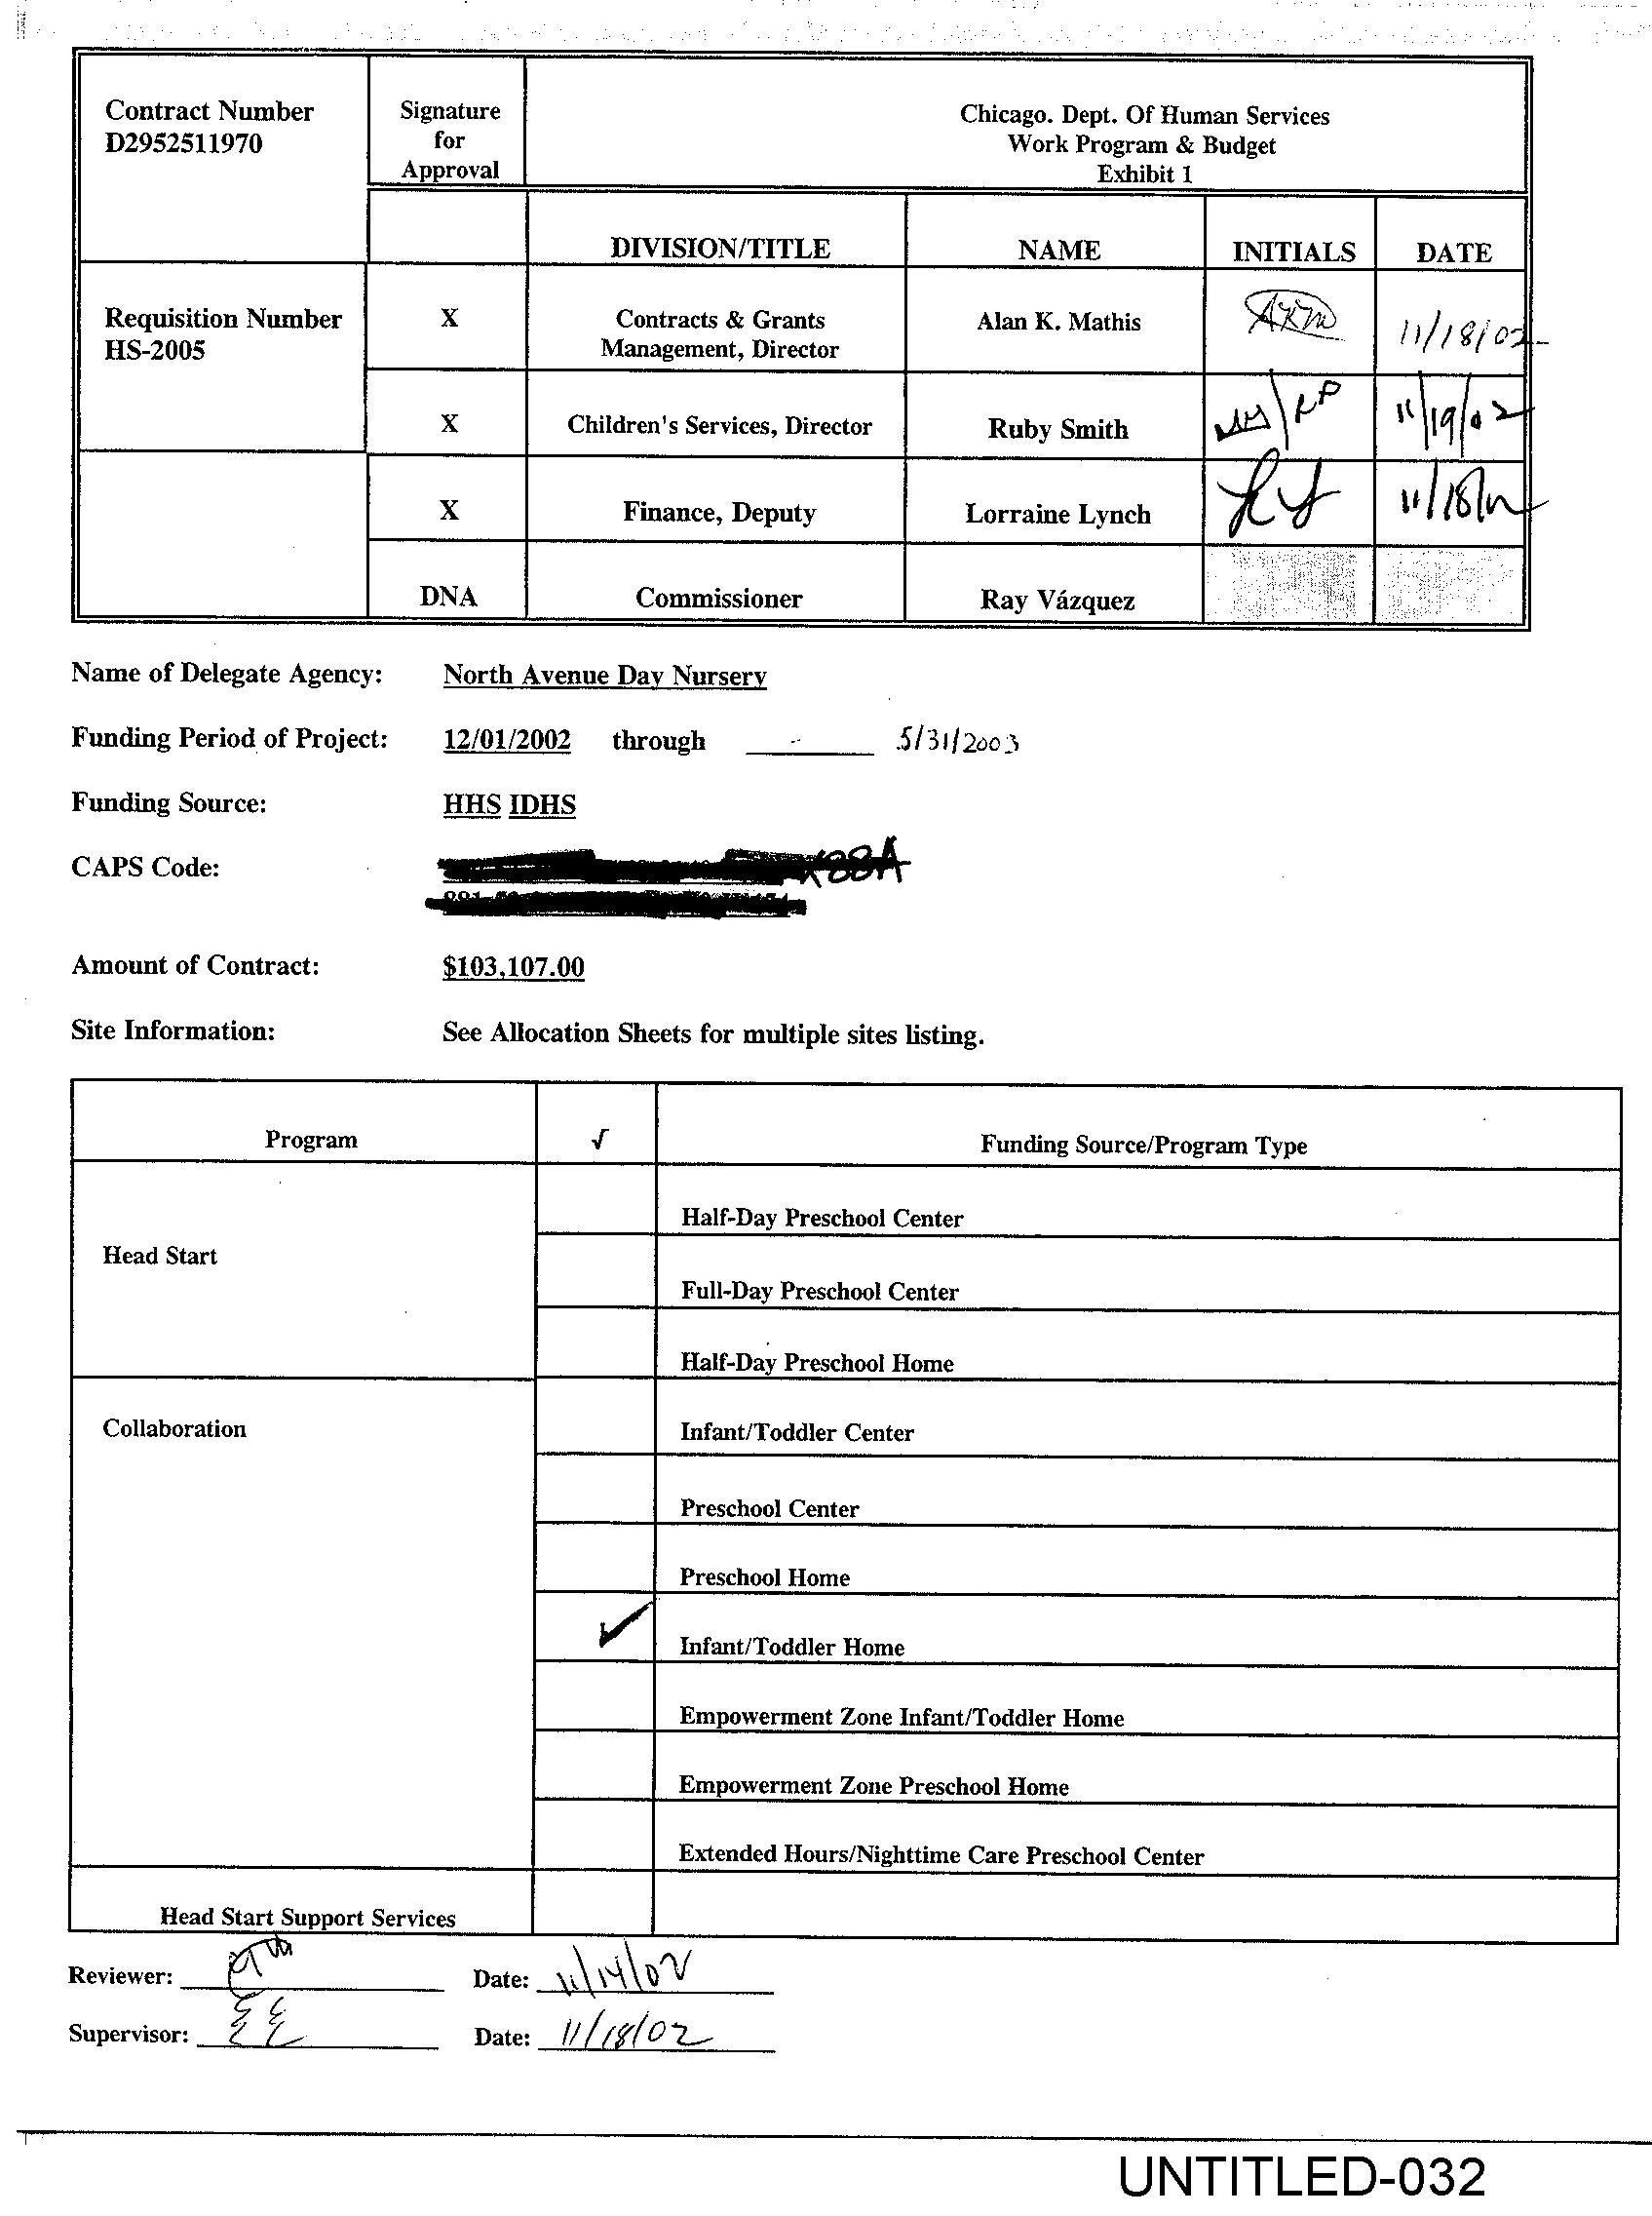 Contract Number
D2952511970
Signature
for
Approval
Chicago. Dept. Of Human Services
Work Program & Budget
Exhibit 1
DIVISION/TITLE NAME INITIALS DATE
Requisition Number
HS-2005
X Contracts & Grants
Management, Director Alan K. Mathis AKM 11/18/02
X Children's Services, Director Ruby Smith 11/19/02
X Finance, Deputy Lorraine Lynch 11/18/02
DNA Commissioner Ray Vázquez
Name of Delegate Agency: North Avenue Day Nursery
Funding Period of Project: 12/01/2002 through 5/31/2003
Funding Source: HHS IDHS
CAPS Code:
Amount of Contract: $103,107.00
Site Information: See Allocation Sheets for multiple sites listing.
Program √ Funding Source/Program Type
Head Start
Half-Day Preschool Center
Full-Day Preschool Center
Half-Day Preschool Home
Collaboration
Infant/Toddler Center
Preschool Center
Preschool Home
✓ Infant/Toddler Home
Empowerment Zone Infant/Toddler Home
Empowerment Zone Preschool Home
Extended Hours/Nighttime Care Preschool Center
Head Start Support Services
Reviewer: Date: 11/14/02
Supervisor: Date: 11/18/02
UNTITLED-032